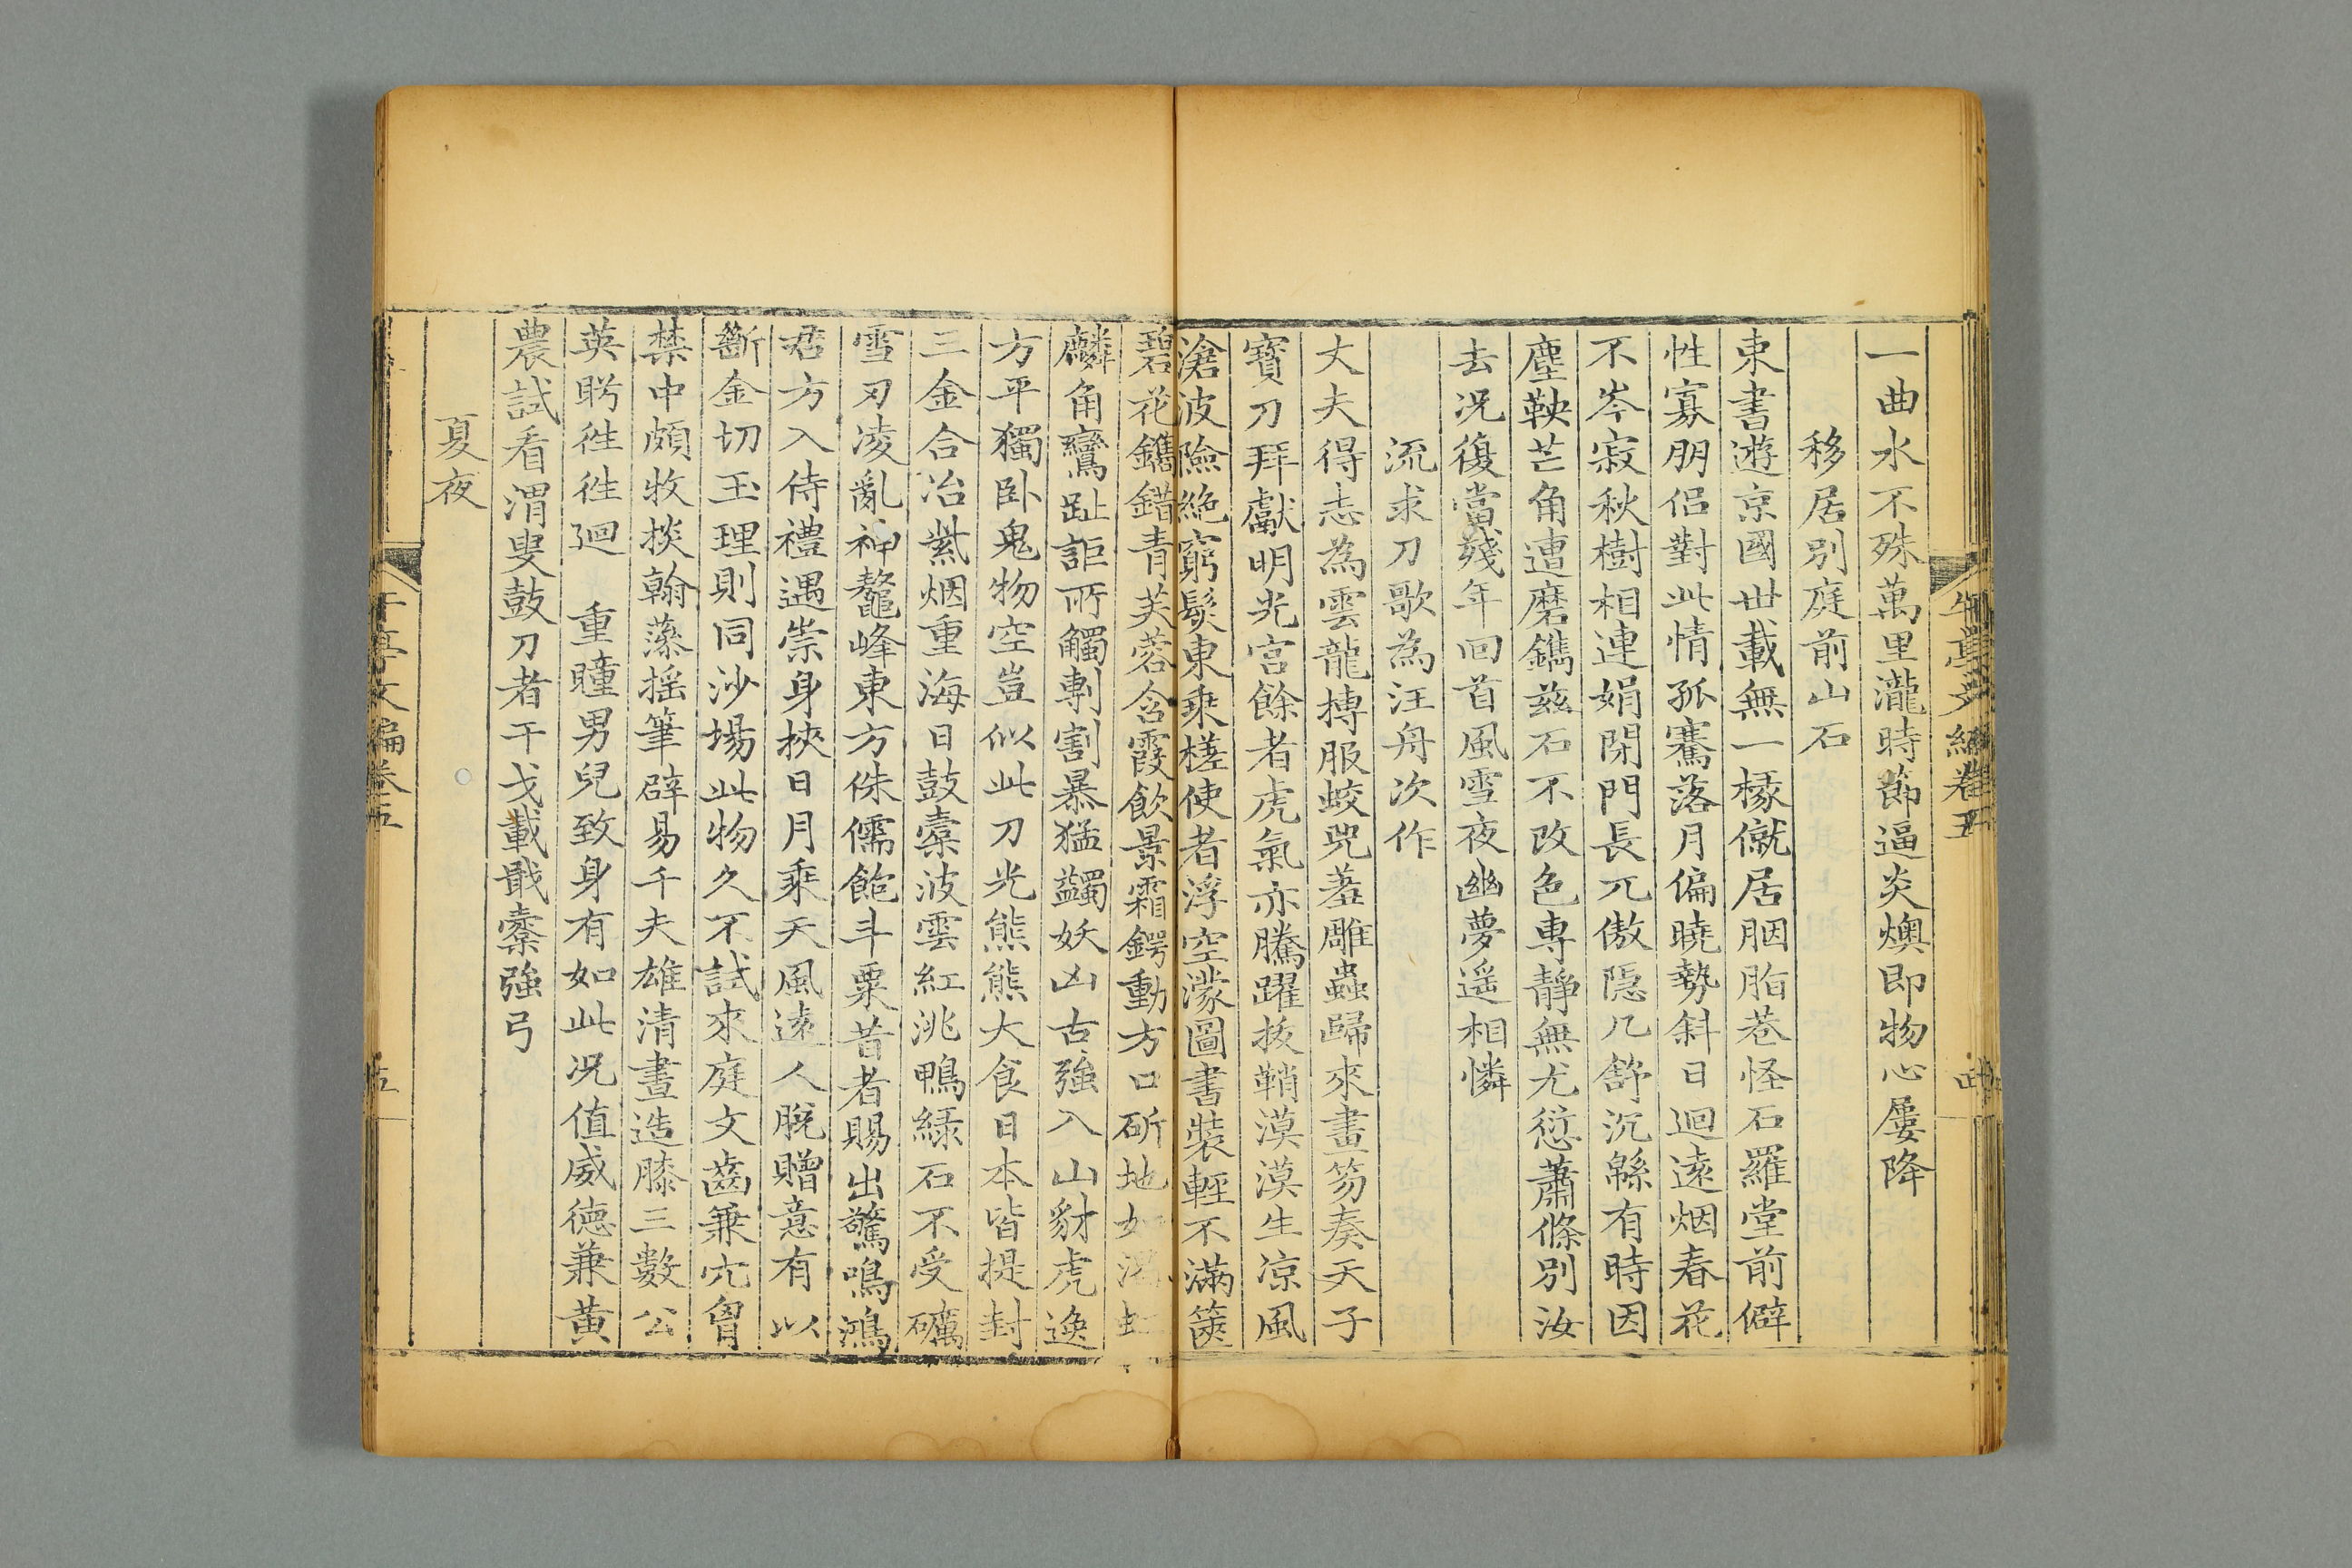 一曲水不殊萬里瀧時節逼炎燠即物心屢降
移居別庭前山石
束書遊京國卋載無一椽僦居胭脂巷怪石羅堂前僻
性寡朋侶對此情孤騫落月偏曉勢斜日迴遠烟春花
不岑寂秋樹相連娟閉門長兀傲隱几舒沉緜有時因
塵鞅芒角遭磨鐫茲石不改色專靜無尤愆蕭條別汝
去況復當殘年回首風雪夜幽夢遥相憐
流求刀歌為汪舟次作
丈夫得志為雲龍摶服蛟兕羞雕蟲歸來晝笏奏天子
寶刀拜獻明光宮餘者虎氣亦騰躍拔鞘漠漠生凉風
滄波險絶窮髮東乘槎使者浮空濛圖書裝輕不滿篋
碧花鐫錯青芙蓉含霞飲景霜鍔動方口斫地如
麟角鸞趾詎所觸剸割暴猛蠲妖凶古強入山豺虎逸
方平獨卧鬼物空豈似此刀光熊熊大食日本皆提封
三金合冶紫烟重海日鼓橐波雲紅洮鴨緑石不受礪
雪刃凌亂神鼇峰東方侏儒飽斗粟昔者賜出驚鳴鴻
君方入侍禮遇崇身挾日月乘天風遠人脫贈意有以
斷金切玉理則同沙場此物久不試來庭文齒兼穴胷
禁中頗牧掞翰藻摇筆辟易千夫雄清晝造膝三數公
英眄徃徃廻 重瞳男兒致身有如此況值威德兼黄
農試看渭叟鼓刀者干戈載戢櫜強弓
夏夜
午亭文編卷五
五